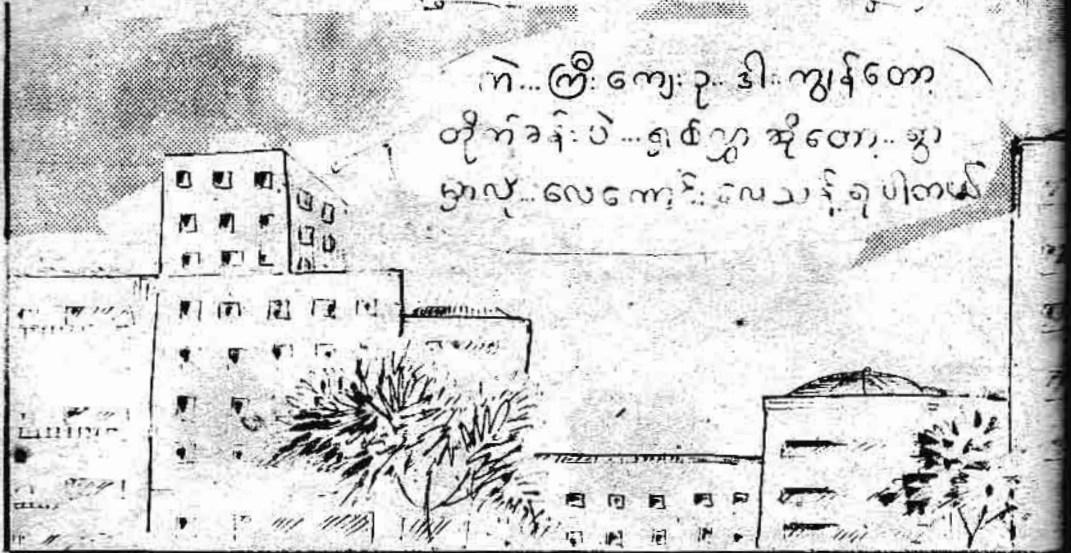 ကဲ...ကြီးကျေးဥ..ဒါ..ကျွန်တော့
တိုက်ခန်းပဲ...ရှစ်လွှာဆိုတော့..
မှာလို့...လေကောင်းလေသန့်ရပါတယ်